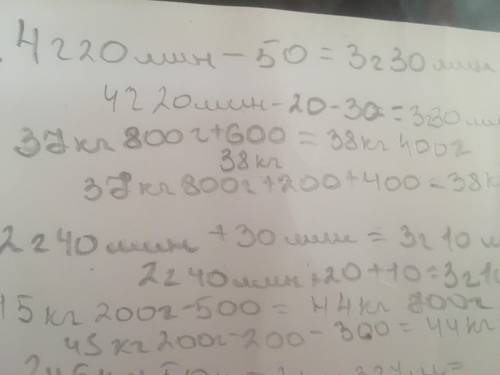 4г20мин-50=3г30мин
4г20мин-20-30=3г30ми
37кг800г+600=38кг400г
38кг
37кг800г+200+400=38к
2г40мин+30мин=3г10м
2г40мин+20+10=3г10
15кг200г-500=44кг700г
45кг200г-200-300=44кг